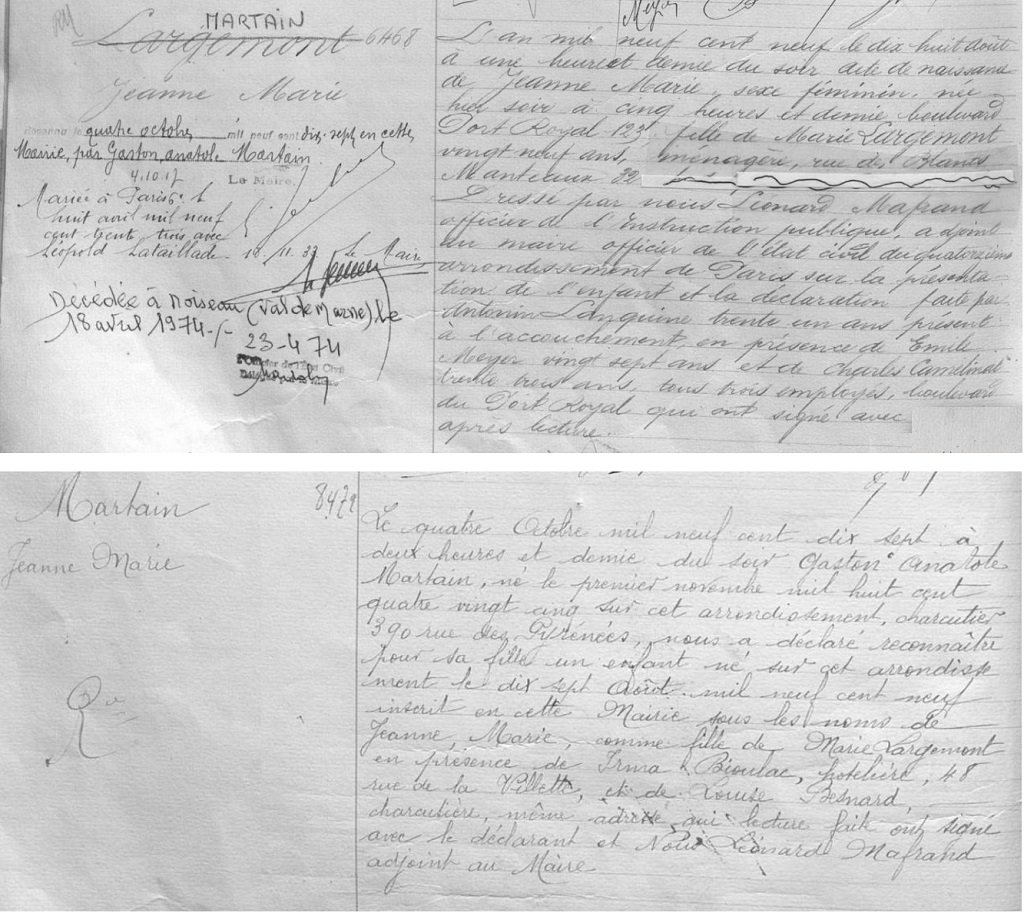 MARTAIN
Largemont 6468
Jeanne Marie
Reconnu le quatre octobre mil neuf cent dix-sept en cette
Mairie, par Gaston, anatole Martain
4.10.17
Le Maire,
Mariée à Paris
huit avril mil neuf
cent trente trois avec
Léopold Lataillade. 18/11.33 Le Maire
Décédée à Noiseau (Val de Marne) le
18 avril 1974-/-
23-4 74
L'an mil neuf cent neuf le dix huit août
à une heure et demie du soir acte de naissance
de Jeanne Marie, sexe féminin, née
hier soir à cinq heures et demie, boulevard
Port Royal 123, fille de Marie Largemont
vingt neuf ans, ménagère, rue des Blancs
Manteaux 22
Dressé par nous Léonard Mafrand
officier de l'Instruction publique, adjoint
au maire officier de l'état civil du quatorzième
arrondissement de Paris sur la présenta-
tion de l'enfant et la déclaration faite par
Antonin Languine trente un ans présent
à l'accouchement, en présence de Emile
Meyer vingt sept ans, et de Charles Camélinat
trente trois ans, tous trois employés, boulevard
du Port Royal qui ont signé avec
après lecture.
Martain 8472
Jeanne Marie
Le quatre Octobre mil neuf cent dix sept à
deux heures et demie du soir Gaston Anatole
Martain, né le premier novembre mil huit cent
quatre vingt cinq sur cet arrondissement, charcutier
390 rue des Pyrénées, nous a déclaré reconnaître
pour sa fille un enfant né sur cet arrondisse
ment le dix sept Août mil neuf cent neuf
inscrit en cette Mairie sous les noms de
Jeanne, Marie, comme fille de Marie Largemont
en présence de Irma Bioulac, hotelière, 48
rue de la Villette, et de Louise Besnard,
charcutière, même adresse qui lecture faite ont signé
avec le déclarant et Nous Léonard Mafrand
adjoint au Maire